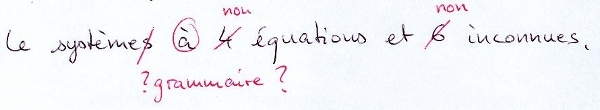 non non
Le systèmes à 4 équations et 6 inconnues.
? grammaire ?